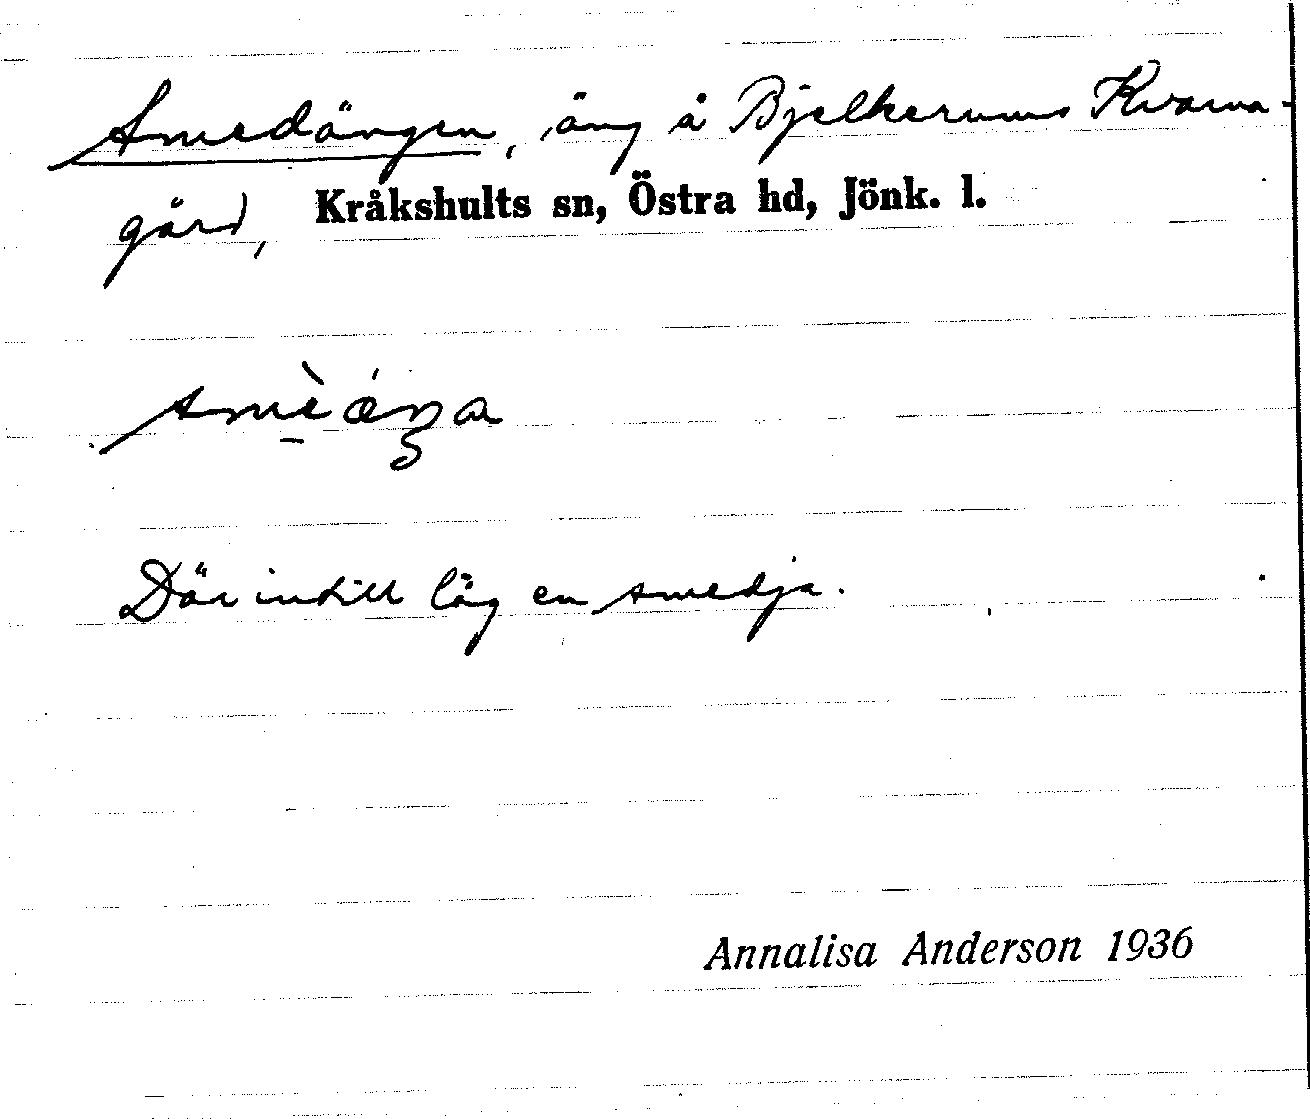 Smedängen, äng å Bjelkerums Kvarn-
gård, Kråkshults sn, Östra hd, Jönk. l.
Därintill låg en smedja.
Annalisa Anderson 1936